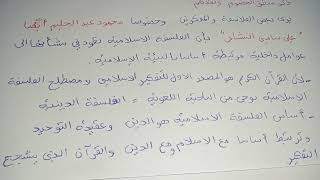 يرى بعض الفلاسفة والمفكرين وخصوصا محمود عبد الحليم أيضا
"علي سامي النشار" بأن الفلسفة الاسلامية تعود في نشأتها الى
عوامل داخلية مرتبطة أساسا بالبيئة الاسلامية.
- لأن القرآن الكريم هو المصدر الاول للتفكير الاسلامي و مصطلح الفلسفة
الاسلامية يوحي من الناحية اللغوية = الفلسفة الدينية
- أساس الفلسفة الاسلامية هو الدين وعقيدة التوحيد
وترتبط أساسا مع الاسلام ومع الدين والقرآن الذي يشجع
التفكير